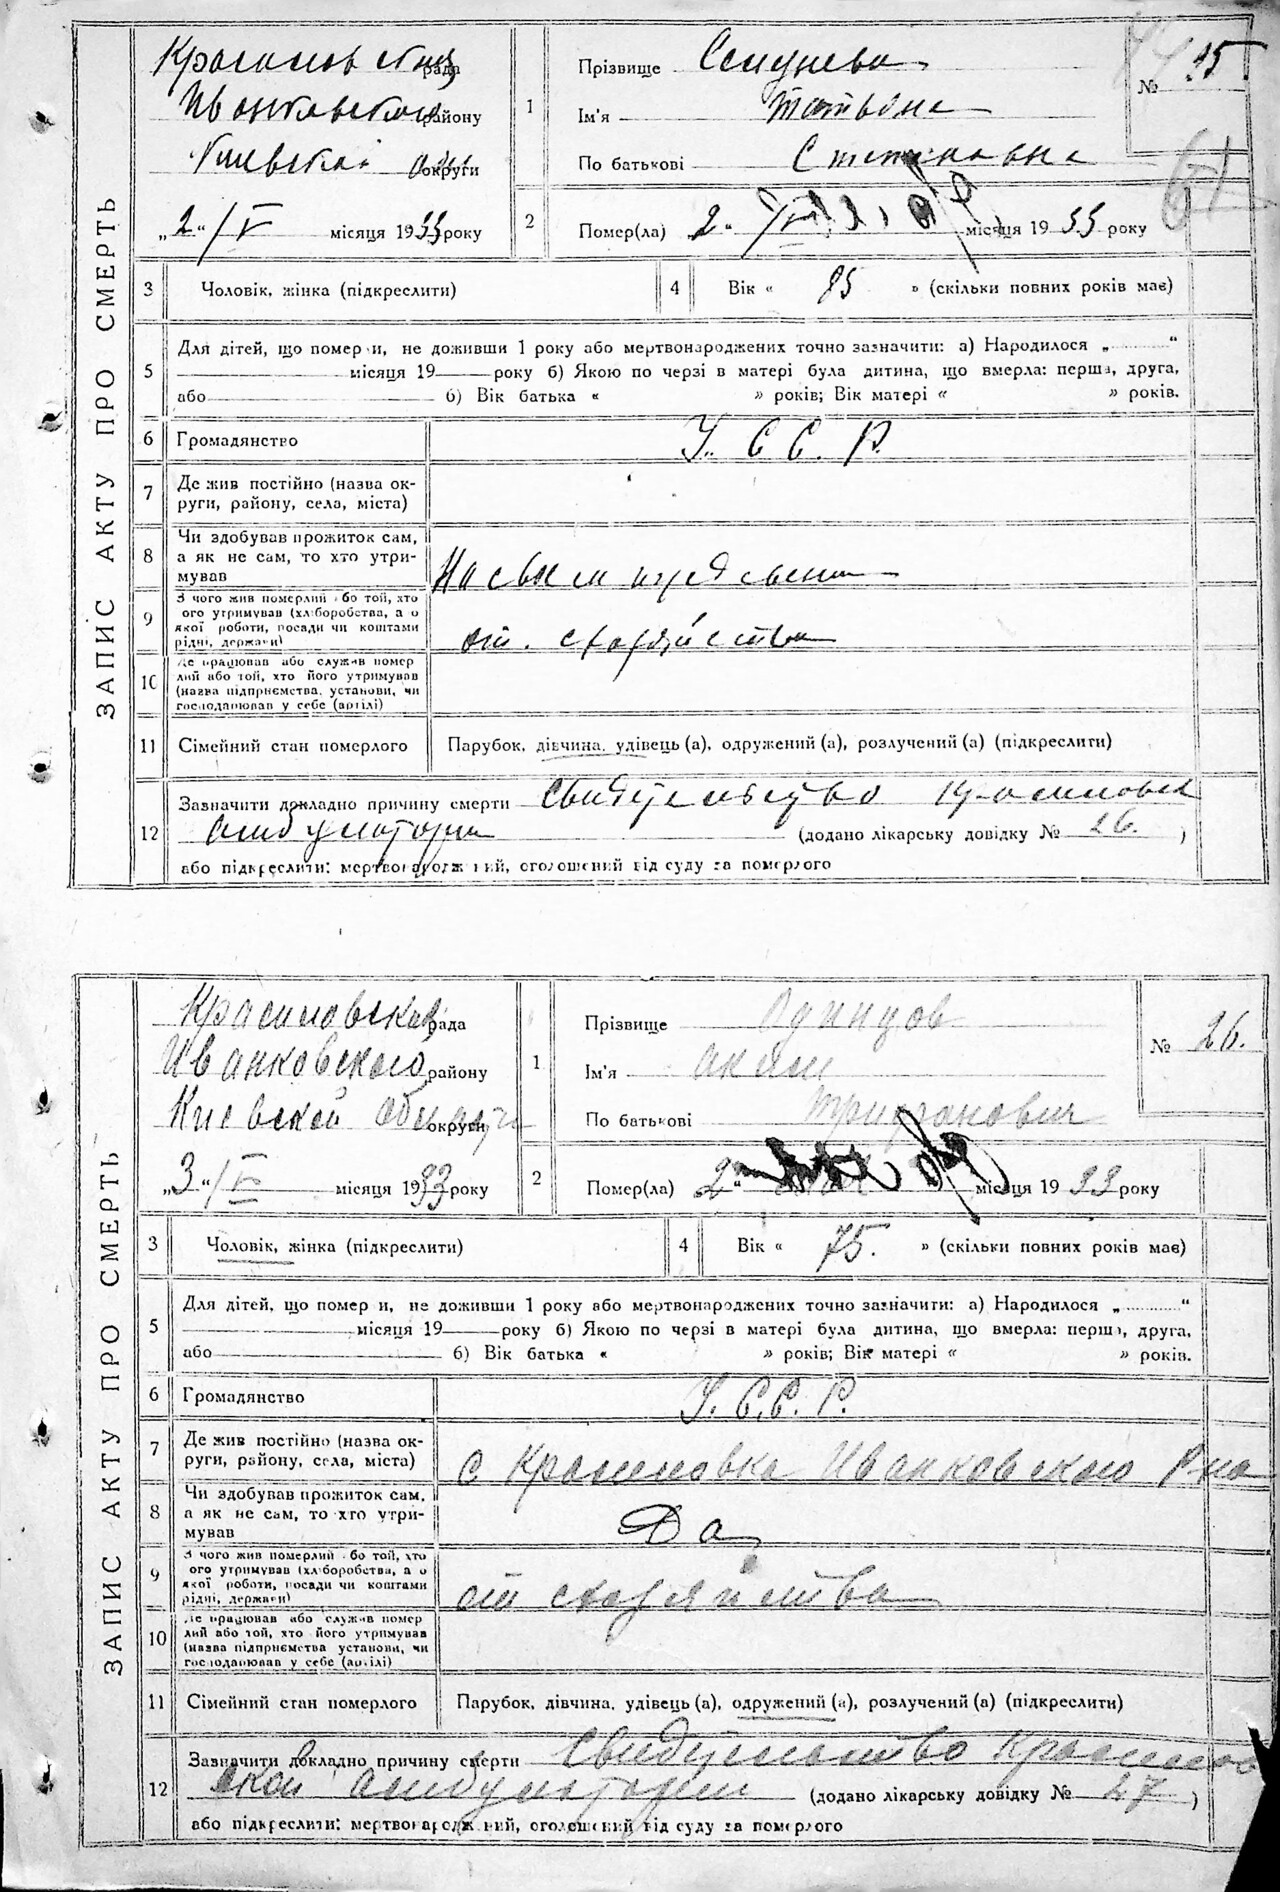 ЗАПИС АКТУ ПРО СМЕРТЬ
рада
району
округи
„2“ / V місяця 1933 року
1 Прізвище
Ім'я Татьяна
По батькові Степановна
№ 25
61
2 Помер(ла) „2“ / V місяця 1933 року
3 Чоловік, жінка (підкреслити)
4 Вік « » (скільки повних років має)
5 Для дітей, що померли, не доживши 1 року або мертвонароджених точно зазначити: а) Народилося „ “
місяця 19 року б) Якою по черзі в матері була дитина, що вмерла: перша, друга,
або б) Вік батька « » років; Вік матері « » років.
6 Громадянство У. С. С. Р.
7 Де жив постійно (назва ок-
руги, району, села, міста)
8 Чи здобував прожиток сам,
а як не сам, то хто утри-
мував
9 З чого жив померлий або той, хто
його утримував (хліборобства, з
якої роботи, посади чи коштами
рідні, держави)
от.
10 Де працював або служив помер
лий або той, хто його утримував
(назва підприємства, установи, чи
господарював у себе (артілі)
11 Сімейний стан померлого Парубок, дівчина, удівець (а), одружений (а), розлучений (а) (підкреслити)
12 Зазначити докладно причину смерти Свидетельство
амбулатории (додано лікарську довідку № 26. )
або підкреслити: мертвонароджений, оголошений від суду за померлого
ЗАПИС АКТУ ПРО СМЕРТЬ
рада
Иванковского району
Киевской области округи
„3“ / V місяця 1933 року
1 Прізвище Одинцов
Ім'я Аким
По батькові Трифонович
№ 26.
2 Помер(ла) 2“ місяця 1933 року
3 Чоловік, жінка (підкреслити)
4 Вік « 75. » (скільки повних років має)
5 Для дітей, що померли, не доживши 1 року або мертвонароджених точно зазначити: а) Народилося „ “
місяця 19 року б) Якою по черзі в матері була дитина, що вмерла: перша, друга,
або б) Вік батька « » років; Вік матері « » років.
6 Громадянство У. С. С. Р.
7 Де жив постійно (назва ок-
руги, району, села, міста)
с Иванковского Р-на
8 Чи здобував прожиток сам,
а як не сам, то хто утри-
мував
Да
9 З чого жив померлий або той, хто
його утримував (хліборобства, з
якої роботи, посади чи коштами
рідні, держави)
от схозяйства
10 Де працював або служив помер
лий або той, хто його утримував
(назва підприємства, установи, чи
господарював у себе (артілі)
11 Сімейний стан померлого Парубок, дівчина, удівець (а), одружений (а), розлучений (а) (підкреслити)
12 Зазначити докладно причину смерти Свидетельство
ской амбулатории (додано лікарську довідку № 27 )
або підкреслити: мертвонароджений, оголошений від суду за померлого